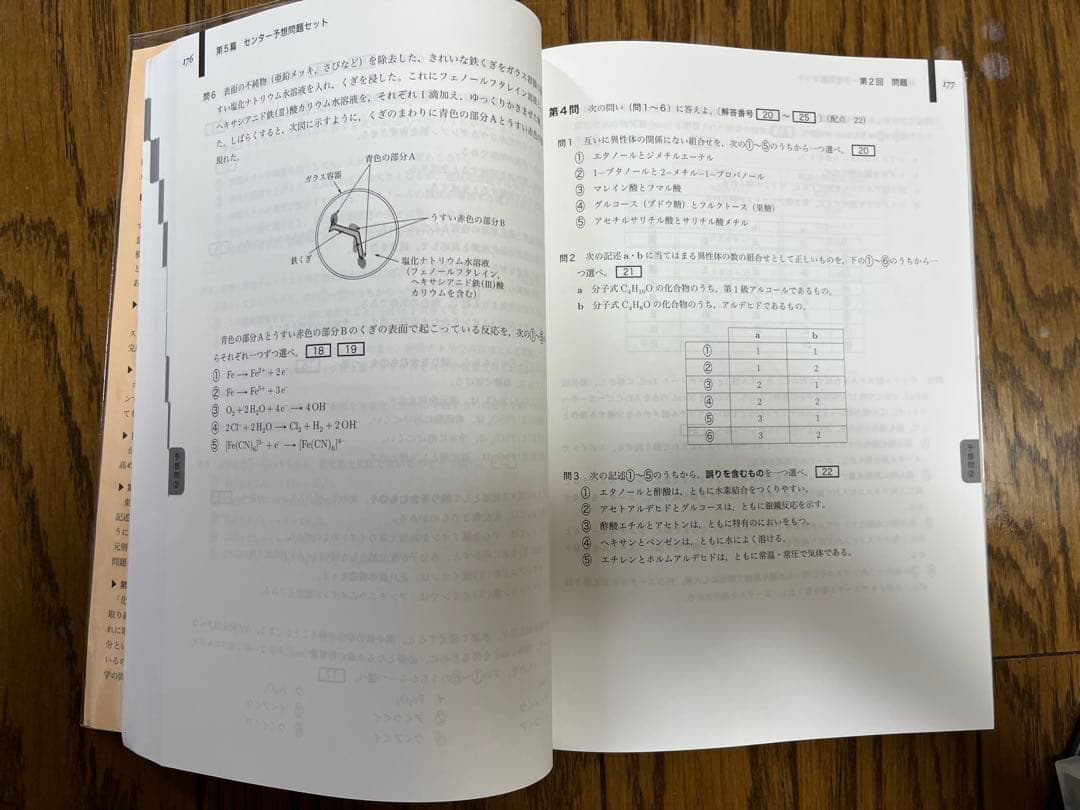 176
第5篇 センター予想問題セット
問6 表面の不純物(亜鉛メッキ，さびなど)を除去した，きれいな鉄くぎをガラス容器
すい塩化ナトリウム水溶液を入れ，くぎを浸した。これにフェノールフタレイン溶液
ヘキサシアニド鉄(Ⅲ)酸カリウム水溶液を，それぞれ1滴加え，ゆっくりかきまぜた
た。しばらくすると，次図に示すように，くぎのまわりに青色の部分Aとうすい赤色
現れた。
青色の部分A
ガラス容器
うすい赤色の部分B
鉄くぎ
塩化ナトリウム水溶液
(フェノールフタレイン，
ヘキサシアニド鉄(Ⅲ)酸
カリウムを含む)
青色の部分Aとうすい赤色の部分Bのくぎの表面で起こっている反応を，次の①〜⑤
らそれぞれ一つずつ選べ。 18 19
① Fe → Fe²⁺+2e⁻
② Fe → Fe³⁺+3e⁻
③ O₂+2H₂O+4e⁻ → 4OH⁻
④ 2Cl⁻+2H₂O → Cl₂+H₂+2OH⁻
⑤ [Fe(CN)₆]³⁻+e⁻ → [Fe(CN)₆]⁴⁻
予想問②
第2回 問題
177
第4問 次の問い(問1〜6)に答えよ。〔解答番号 20 〜 25 〕(配点 22)
問1 互いに異性体の関係にない組合せを，次の①〜⑤のうちから一つ選べ。 20
① エタノールとジメチルエーテル
② 1-ブタノールと2-メチル-1-プロパノール
③ マレイン酸とフマル酸
④ グルコース(ブドウ糖)とフルクトース(果糖)
⑤ アセチルサリチル酸とサリチル酸メチル
問2 次の記述a・bに当てはまる異性体の数の組合せとして正しいものを，下の①〜⑥のうちから一
つ選べ。 21
a 分子式C₄H₁₀Oの化合物のうち，第1級アルコールであるもの。
b 分子式C₄H₈Oの化合物のうち，アルデヒドであるもの。
a b
① 1 1
② 1 2
③ 2 1
④ 2 2
⑤ 3 1
⑥ 3 2
問3 次の記述①〜⑤のうちから，誤りを含むものを一つ選べ。 22
① エタノールと酢酸は，ともに水素結合をつくりやすい。
② アセトアルデヒドとグルコースは，ともに銀鏡反応を示す。
③ 酢酸エチルとアセトンは，ともに特有のにおいをもつ。
④ ヘキサンとベンゼンは，ともに水によく溶ける。
⑤ エチレンとホルムアルデヒドは，ともに常温・常圧で気体である。
予想問②